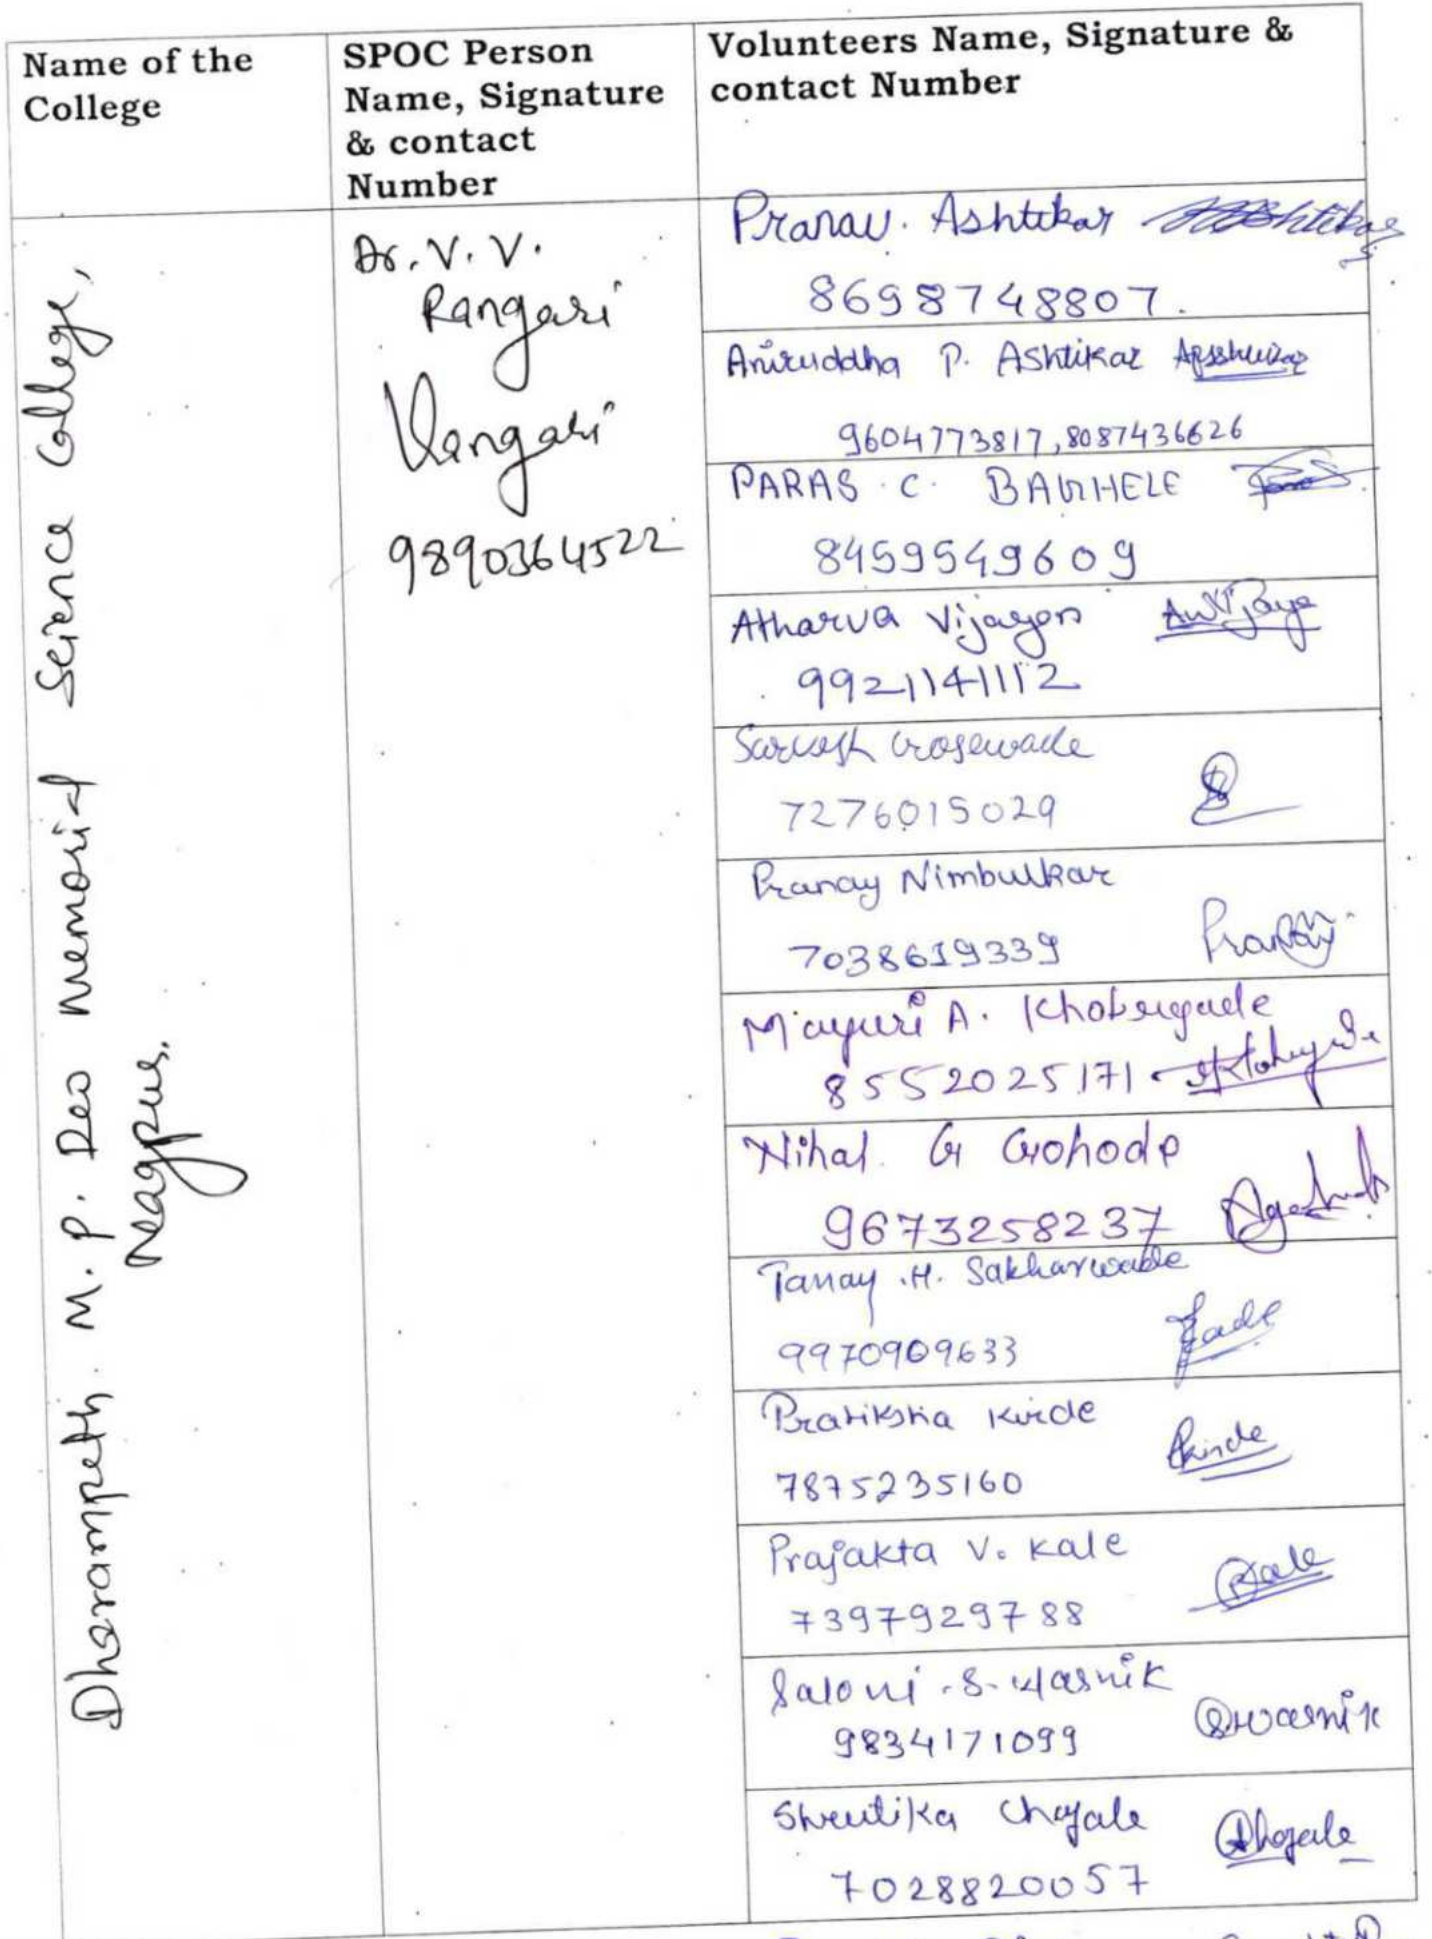 Name of the College
SPOC Person Name, Signature & contact Number
Volunteers Name, Signature & contact Number
Dharampeth M. P. Deo memorial Science College,
Nagpur.
Dr. V. V.
Rangari
Rangari
9890364522
Pranav. Ashtikar
8698748807.
Aniruddha P. Ashtikar
9604773817, 8087436626
PARAS C. BAGHELE
8459549609
Atharva Vijayan
9921141112
Sarvesh Gosewade
7276015029
Pranay Nimbulkar
7038619339 Pranay
Mayuri A. Khobragade
8552025171
Nihal G Gohode
9673258237
Tanay .H. Sakharwade
9970909633
Pratiksha Kirde
7875235160 Pkirde
Prajakta V. Kale
7397929788 Pkale
Saloni .S. Wasnik
9834171099 Swasnik
Shrutika Chafale
7028820057